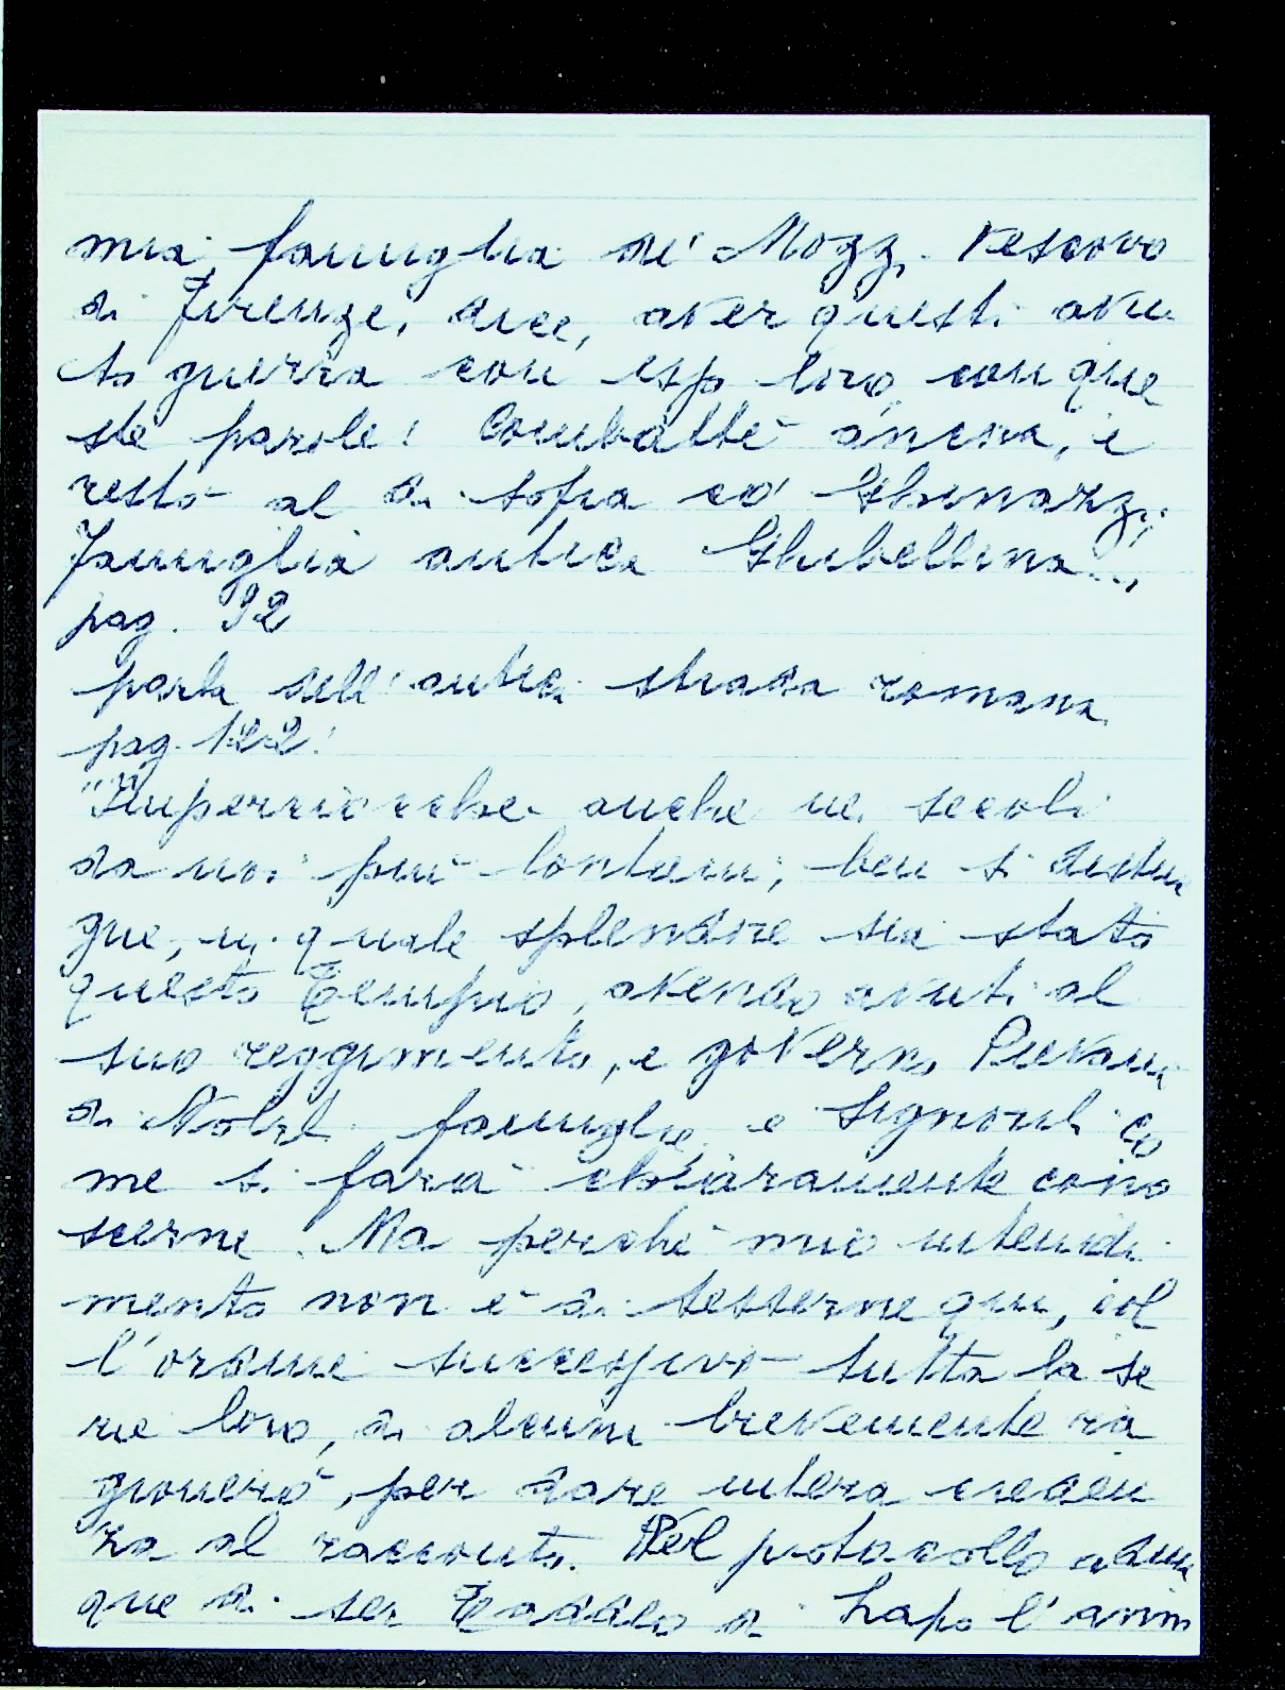 mia famiglia de' Mozzi Vescovo
di Firenze, dice, aver questi avu
to guerra con esso loro, con que
ste parole! Combattè ancora, e
restò al di sopra co'
famiglia antica Ghibellina...,
pag. 92
parla dell'antica strada romana
pag. 122:
"Imperciocche anche ne, secoli
da noi più lontani, ben si distin
gue, in quale splendore sia stato
questo Tempio, avendo avuti al
suo reggimento, e governo Pievani
di Nobili famiglie, e Signorili co
me si farà chiaramente cono
scerne. Ma perchè mio intendi
mento non è di tesserne qui, col
l'ordine successivo tutta la se
rie loro, di alcuni brevemente ra
gionerò, per dare intera creden
za al racconto. Pel protocollo adun
que di ser Taddeo di Lapo l'anno